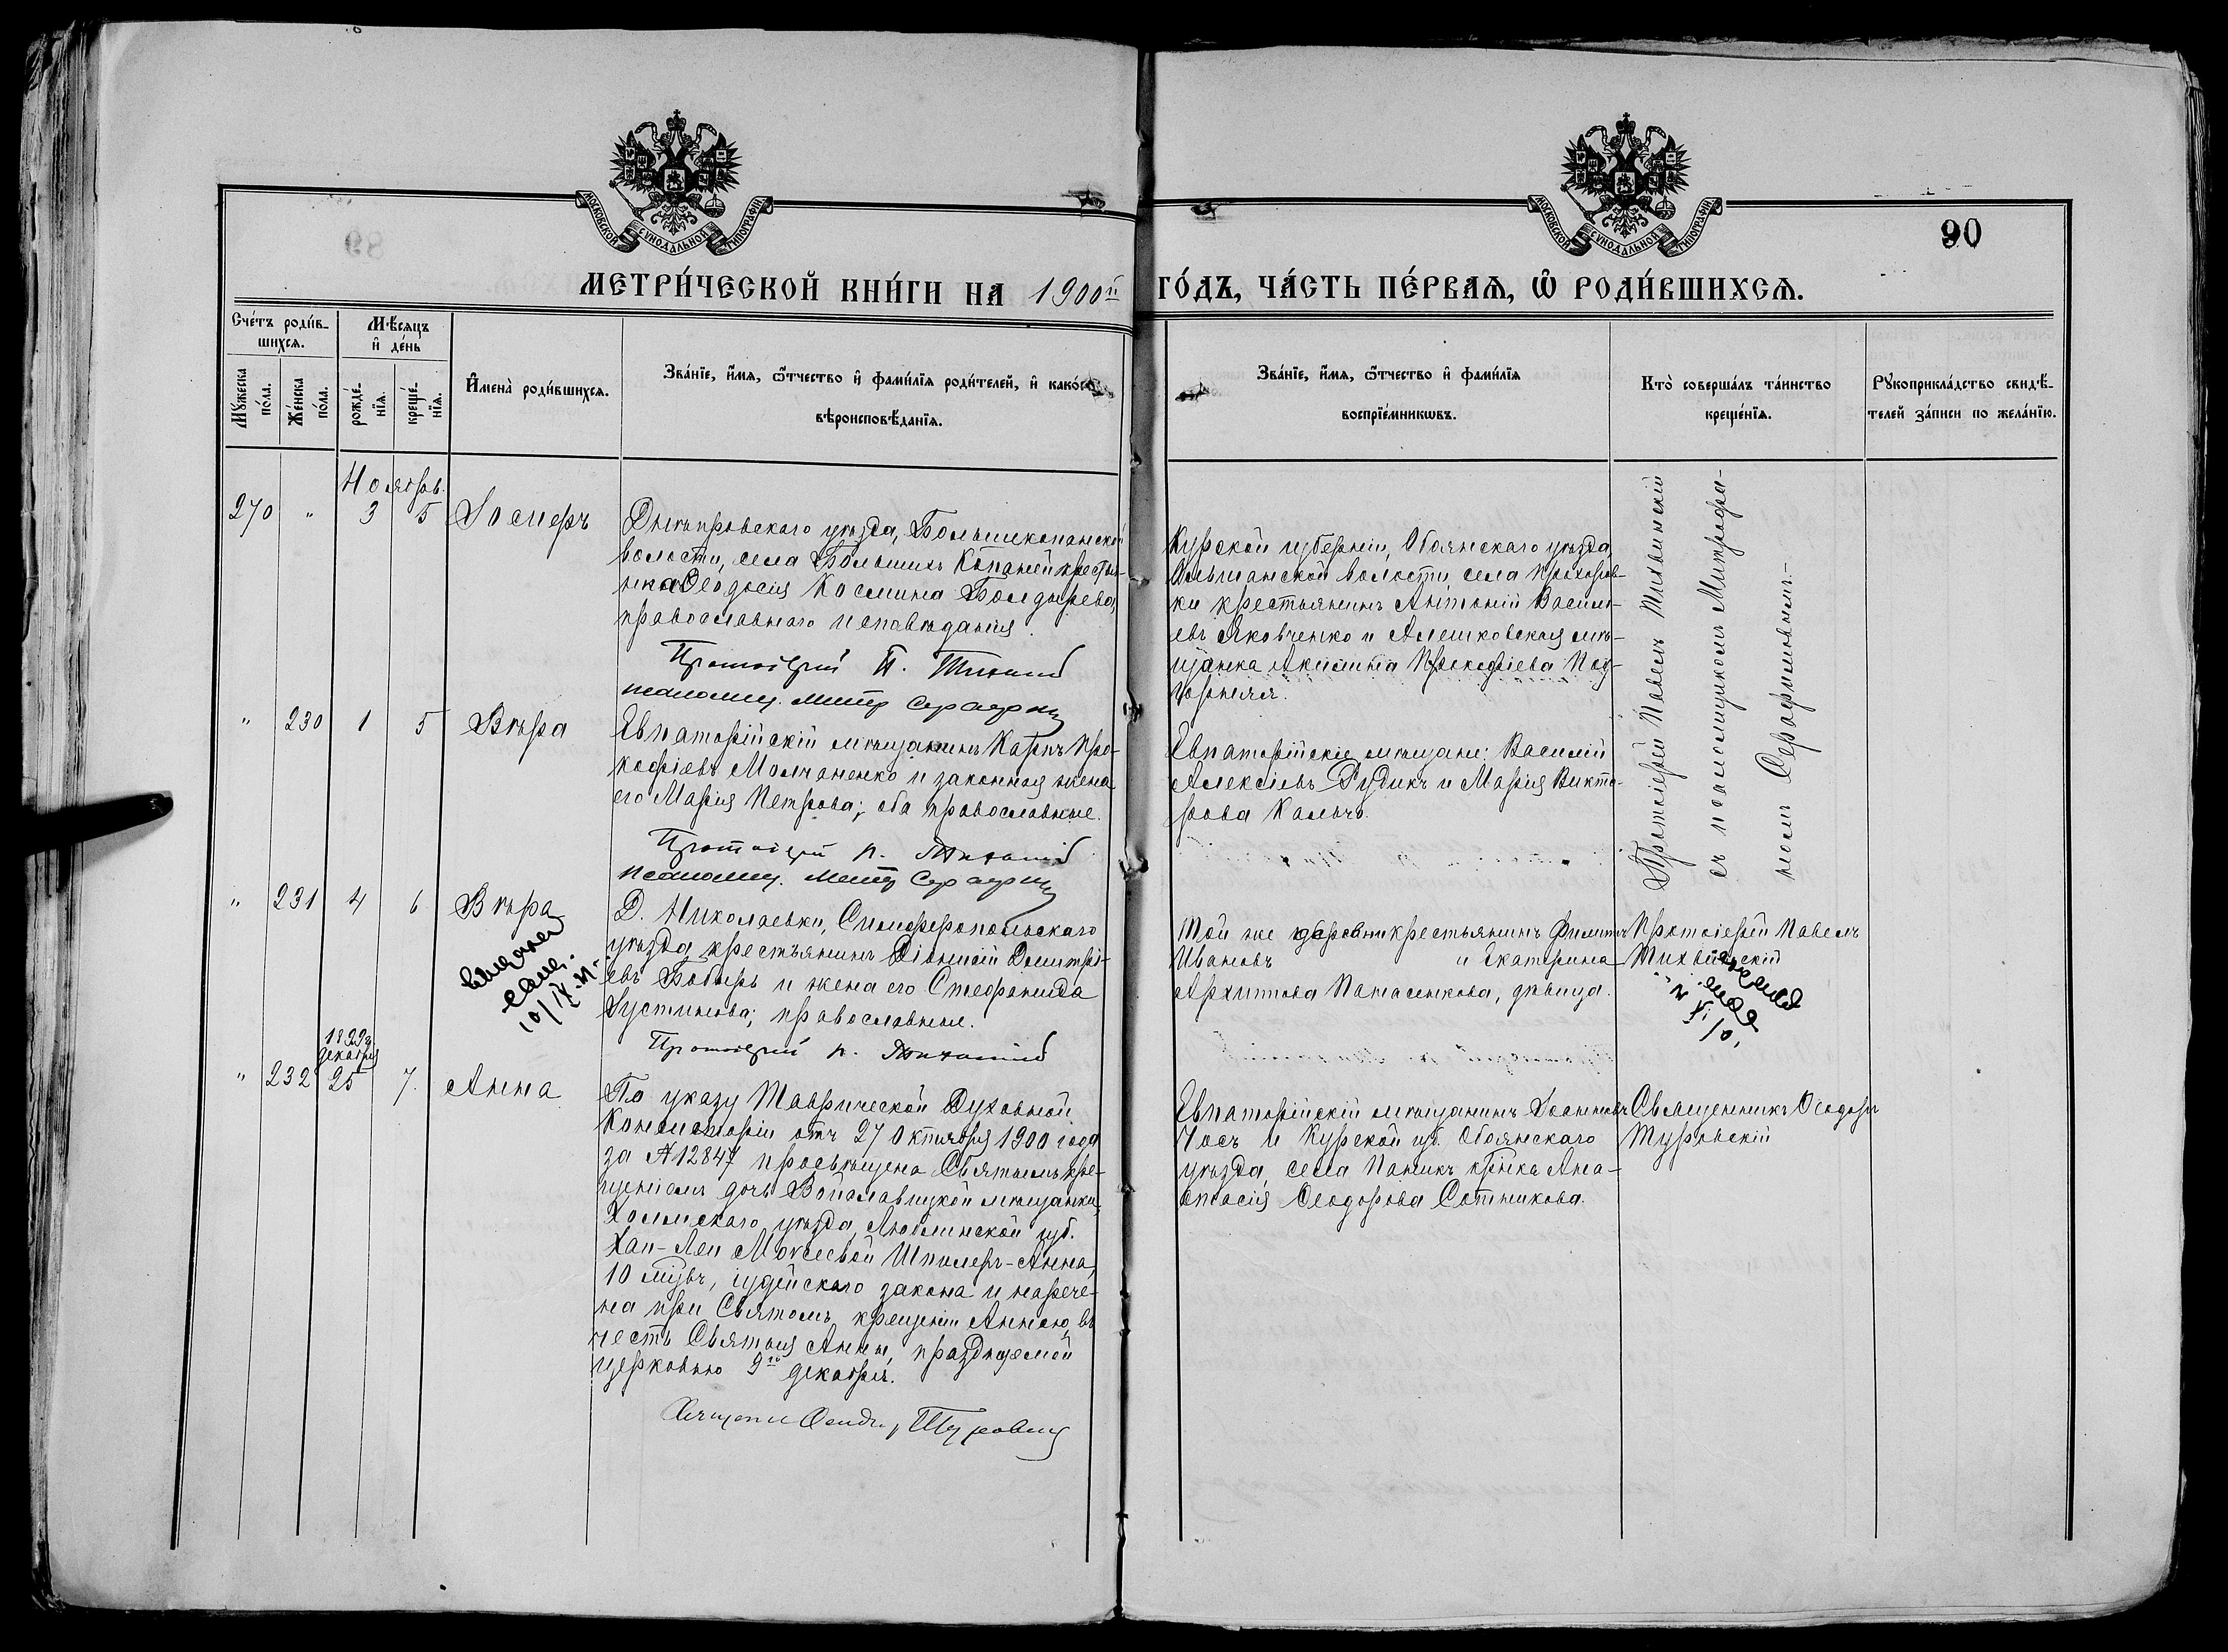 МОСКОВСКОЙ СУНОДАЛЬНОЙ ТИПОГРАФІИ
МОСКОВСКОЙ СУНОДАЛЬНОЙ ТИПОГРАФІИ
90
МЕТРИ́ЧЕСКОЙ КНИ́ГИ НА 1900й ГО́ДЪ, ЧА́СТЬ ПЕ́РВАѦ, Ѡ РОДИ́ВШИХСѦ.
Сче́тъ роди́в-
шихсѧ.
Мꙋжеска по́ла.
Же́нска по́ла.
Мѣ́сяцъ
и де́нь
рожде́-
нїѧ.
креще́-
нїѧ.
Имена̀ роди́вшихсѧ.
Зва́нїе, и́мѧ, ѻ́тчество и фами́лїѧ роди́телей, и како́гѡ
вѣроисповѣ́данїѧ.
Зва́нїе, и́мѧ, ѻ́тчество и фами́лїѧ
воспрїе́мникѡвъ.
Кто̀ соверша́лъ та́инство
креще́нїѧ.
Рꙋкоприкла́дство свидѣ́-
телей за́писи по жела́нїю.
Ноябрь.
270 " 3 5 Іосифъ
Днѣпровскаго уѣзда, Большекопанской
волости, села Большихъ Копаней крестья-
нка Ѳеодосія Космина Болдырева,
православнаго исповѣданія.
Протоіерей П.
Курской губерніи, Обоянскаго уѣзда,
Ольшанской волости, села Прохоров-
ки крестьянинъ Антоній Василь-
евъ Яковченко и Алешковская мѣ-
щанка Акилина Прокофіева Под-
горняя.
Протоіерей Павелъ Тихвинскій
съ псаломщикомъ Митрофа-
номъ Серафимовымъ.-
" 230 1 5 Вѣра
Евпаторійскій мѣщанинъ Карпъ Про-
кофіевъ Молчаненко и законная жена
его Марія Петрова; оба православные.
Протоіерей П.
Евпаторійскіе мѣщане: Василій
Алексіевъ Рудикъ и Марія Викто-
рова Кальчъ.
" 231 4 6 Вѣра
10/IX
Д. Николаевки, Симферопольскаго
уѣзда, крестьянинъ Діонисій Димитрі-
евъ Бобырь и жена его Стефанида
Іустинова; православные.
Протоіерей П.
Той же деревни крестьянинъ Филиппъ
Ивановъ и Екатерина
Архиппова Паталенкова, дѣвица.
Протоіерей Павелъ
Тихвинскій
1899 г.
декабря
" 232 25 7. Анна
По указу Таврической Духовной
Консисторіи отъ 27 Октября 1900 года
за №12847 просвѣщена Святымъ кре-
щеніемъ дочь Войславицкой мѣщанки,
Холмскаго уѣзда, Люблинской губ.
Хаи-Леи Мовсеевой Шпилеръ-Анна,
10 мцвъ, іудейскаго закона и нарече-
на при Святомъ крещеніи Анною, въ
честь Святыя Анны, празднуемой
церковью 9го декабря.
Евпаторійскій мѣщанинъ Іоанновъ
и Курской губ. Обоянскаго
уѣзда, села Паникъ кр-нка Ана-
стасія Ѳеодорова Сотникова.
Священникъ Ѳеодоръ
Туровскій